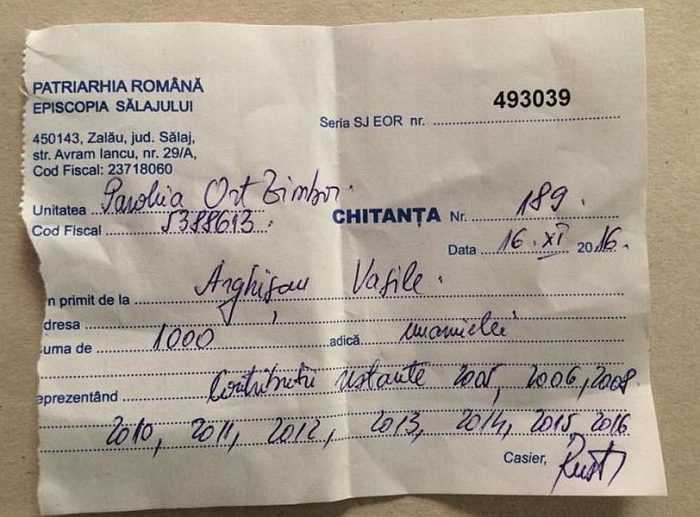 PATRIARHIA ROMÂNĂ
EPISCOPIA SĂLAJULUI
493039
Seria SJ EOR nr.
450143, Zalău, jud. Sălaj,
str. Avram Iancu, nr. 29/A,
Cod Fiscal: 23718060
Unitatea Parohia Ort Zimbor.
Cod Fiscal 5388613.
CHITANȚA Nr. 189.
Data 16. XI 2016.
n primit de la Arghișan Vasile.
dresa
uma de 1000 adică unamielei
eprezentând Contributii restante 2005, 2006, 2008
2010, 2011, 2012, 2013, 2014, 2015, 2016
Casier,